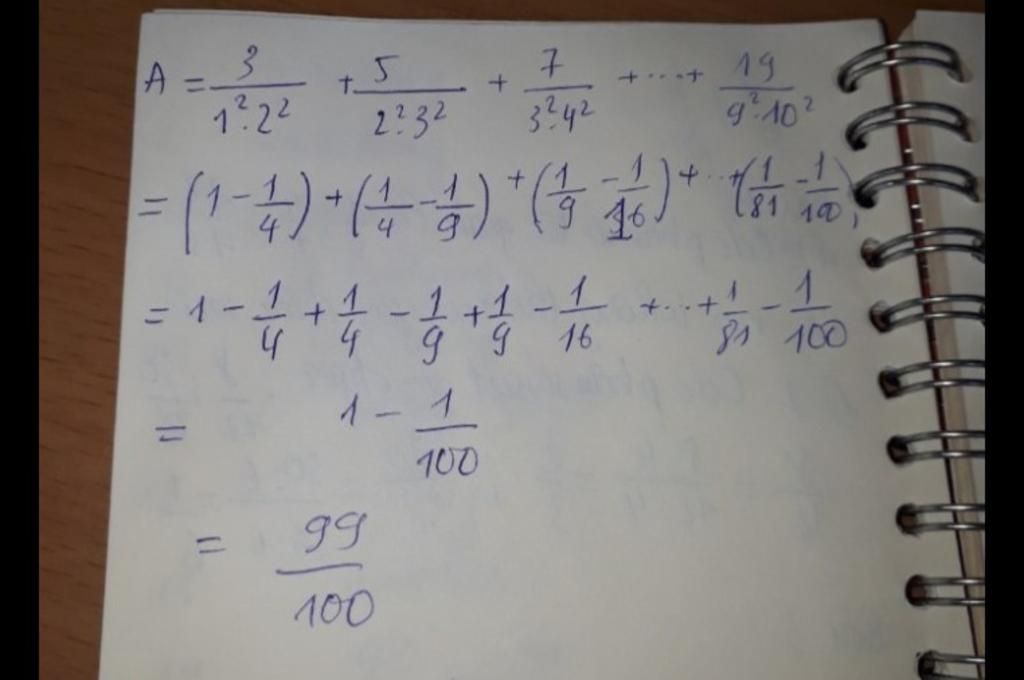 A = 3/(1².2²) + 5/(2².3²) + 7/(3².4²) + ... + 19/(9².10²)
= (1 - 1/4) + (1/4 - 1/9) + (1/9 - 1/16) + ... + (1/81 - 1/100)
= 1 - 1/4 + 1/4 - 1/9 + 1/9 - 1/16 + ... + 1/81 - 1/100
= 1 - 1/100
= 99/100